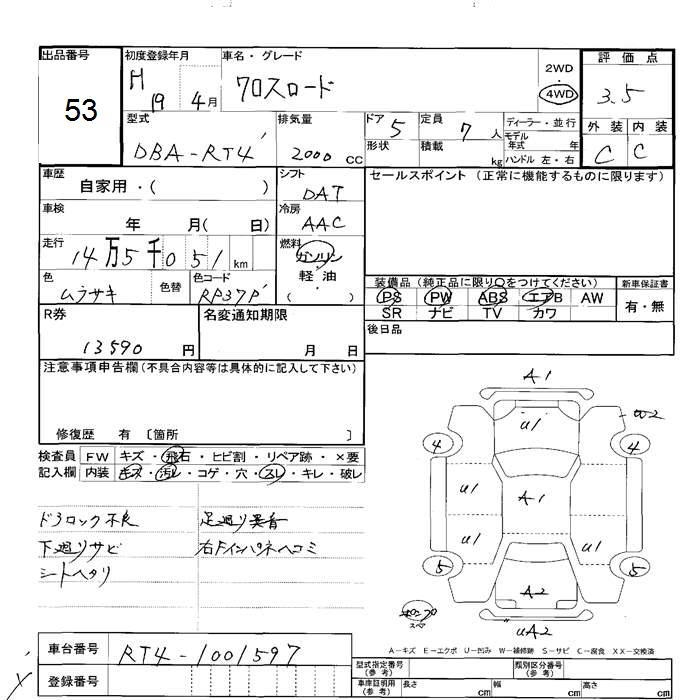 出品番号
53
初度登録年月
H 19 4月
車名・グレード
クロスロード
2WD
4WD
評価点
3.5
型式
DBA-RT4
排気量
2000 cc
ドア 5
形状
定員 7 人
積載 kg
ディーラー・並行
モデル年式 年
ハンドル 左・右
外装 内装
C C
車歴
自家用・( )
シフト
DAT
セールスポイント(正常に機能するものに限ります)
車検
年 月( 日)
冷房
AAC
走行
14万5千051 km
燃料
ガソリン
軽・油
( )
色
ムラサキ
色替
色コード
RP37P
装備品(純正品に限り○をつけてください)
PS PW ABS エアB AW
SR ナビ TV カワ
新車保証書
有・無
R券
13590 円
名変通知期限
月 日
後日品
注意事項申告欄(不具合内容等は具体的に記入して下さい)
修復歴 有 〔箇所 〕
検査員記入欄
FW キズ・飛石・ヒビ割・リペア跡・×要
内装 キズ・汚レ・コゲ・穴・スレ・キレ・破レ
ドアロック不良
足廻り異音
下廻りサビ
右Fインパネヘコミ
シートヘタリ
A1
U1
W2
4
4
U1
A1
U1
U1
5
5
A2
スペア
UA2
A-キズ E-エクボ U-凹み W-補修跡 S-サビ C-腐食 XX-交換済
車台番号
RT4-1001597
登録番号
型式指定番号(参考)
類別区分番号(参考)
車庫証明用(参考) 長さ cm 幅 cm 高さ cm